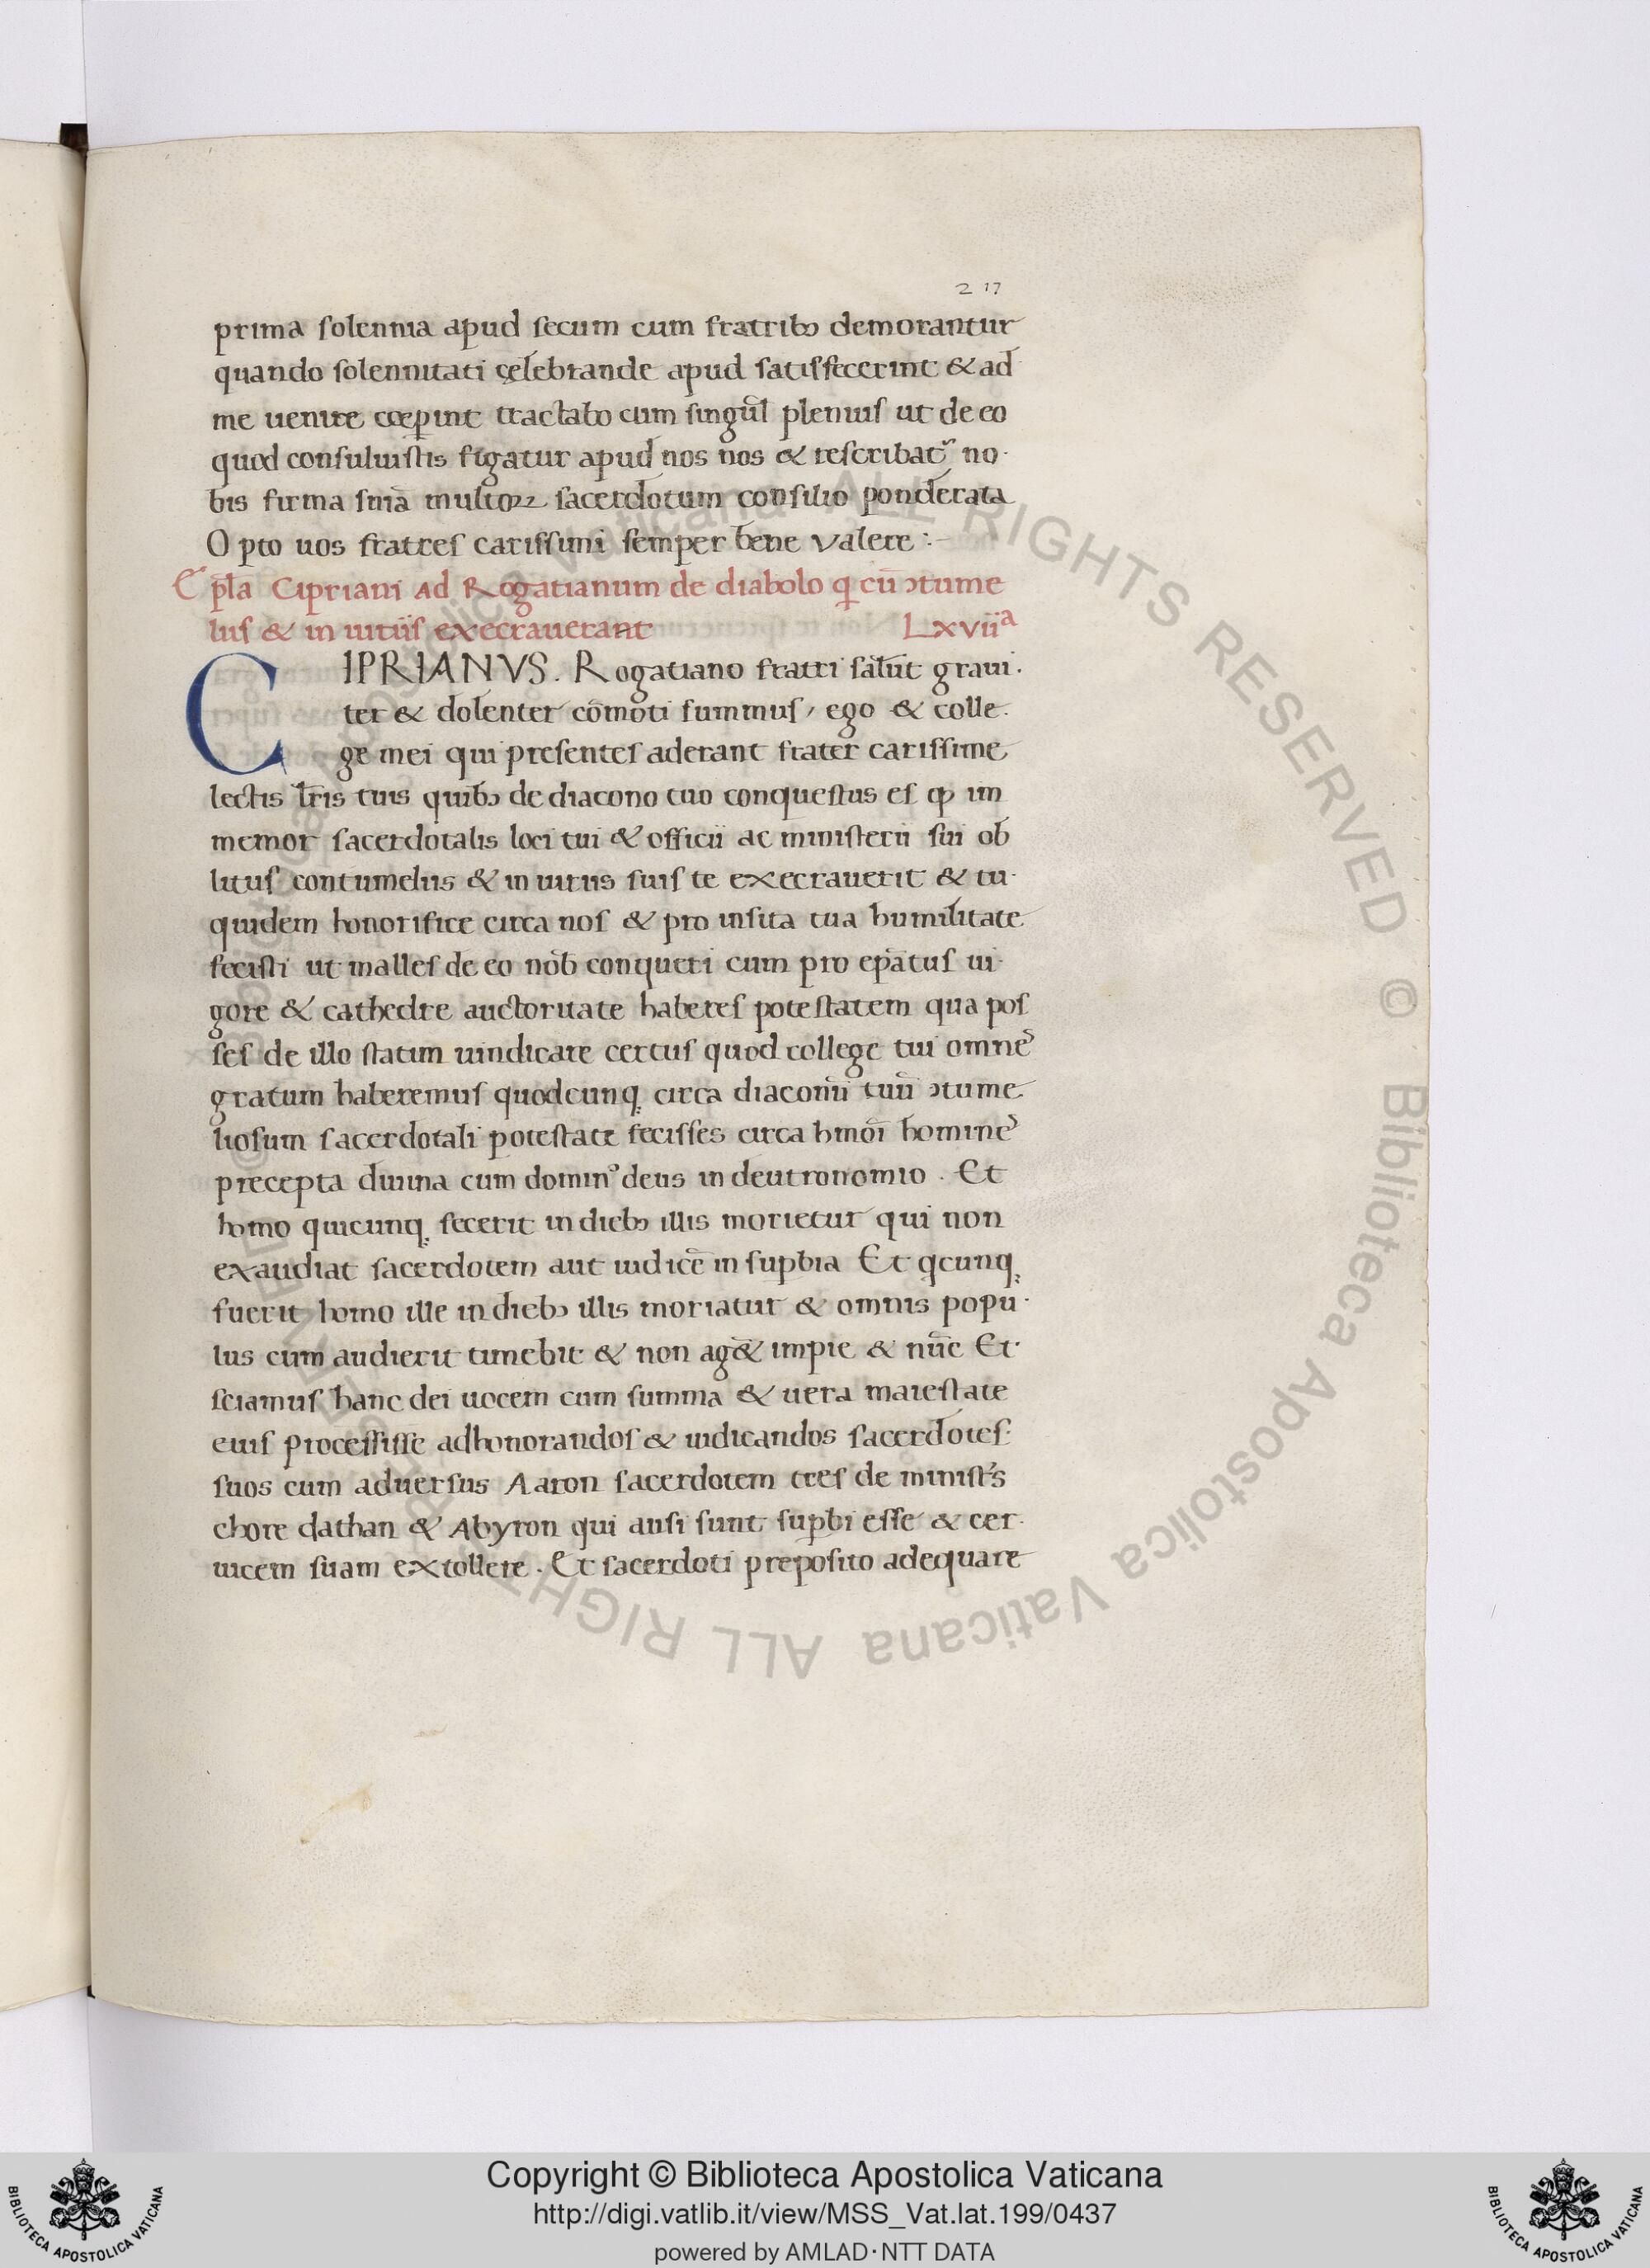 217
prima solennia apud secum cum fratribꝫ demorantur
quando solennitati çelebrande apud satisfecerint & ad
me uenire cœperint tractabo cum singul̄ plenius ut de eo
quod consuluistis figatur apud nos nos & rescribat᷑ no-
bis firma sn̄ia multoꝝ sacerdotum consilio ponderata
Opto uos fratres carissimi semper bene valere :-
Ep̄la Cipriani Ad Rogatianum de diabolo q̣ cū ꝯtume
liis & in iuriis execrauerant LXVIIᵃ
CIPRIANVS. Rogatiano fratri salut̄ graui-
ter & dolenter cōmoti summus, ego & colle-
ge mei qui presentes aderant frater carissime
lectis lr̄is tuis quibꝫ de diacono tuo conquestus es ꝙ im
memor sacerdotalis loci tui & officii ac ministerii sui ob
litus contumeliis & in iuriis suis te execrauerit & tu-
quidem honorifice circa nos & pro insita tua humilitate
fecisti ut malles de eo nob̄ conqueri cum pro ep̄atus ui-
gore & cathedre auctoritate haberes potestatem qua pos
ses de illo statim uindicare certus quod college tui omnē
gratum haberemus quodcunqꝫ circa diaconū tuū ꝯtume
liosum sacerdotali potestate fecisses circa hmōi hominē
precepta diuina cum dominꝰ deus in deutronomio . Et
homo quicunqꝫ fecerit in diebꝫ illis morietur qui non
exaudiat sacerdotem aut iudicē in suꝑbia Et qcunqꝫ
fuerit homo ille in diebꝫ illis moriatur & omnis popu-
lus cum audierit timebit & non ag& impie & nūc Et
sciamus hanc dei uocem cum summa & uera maiestate
eius processisse ad honorandos & iudicandos sacerdotes
suos cum aduersus Aaron sacerdotem tres de minist's
chore dathan & Abyron qui ausi sunt suꝑbi esse & cer-
uicem suam extollere . Et sacerdoti preposito adequare
Copyright © Biblioteca Apostolica Vaticana
http://digi.vatlib.it/view/MSS_Vat.lat.199/0437
powered by AMLAD·NTT DATA
BIBLIOTECA APOSTOLICA VATICANA
BIBLIOTECA APOSTOLICA VATICANA